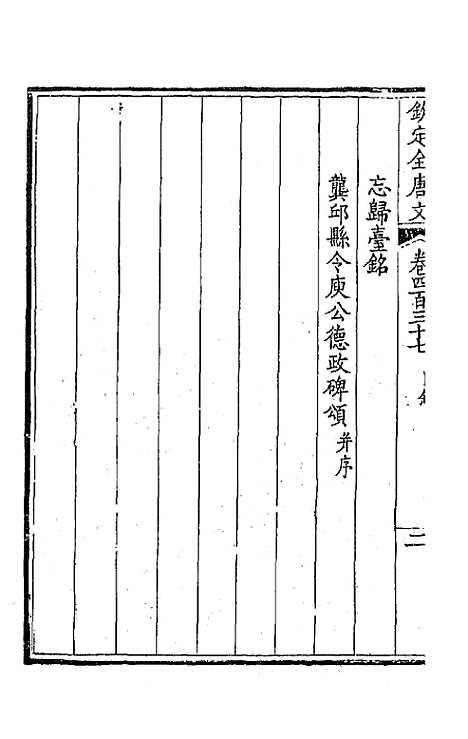 欽定全唐文 卷四百三十七 目錄 二
忘歸臺銘
龔邱縣令庾公德政碑頌 并序